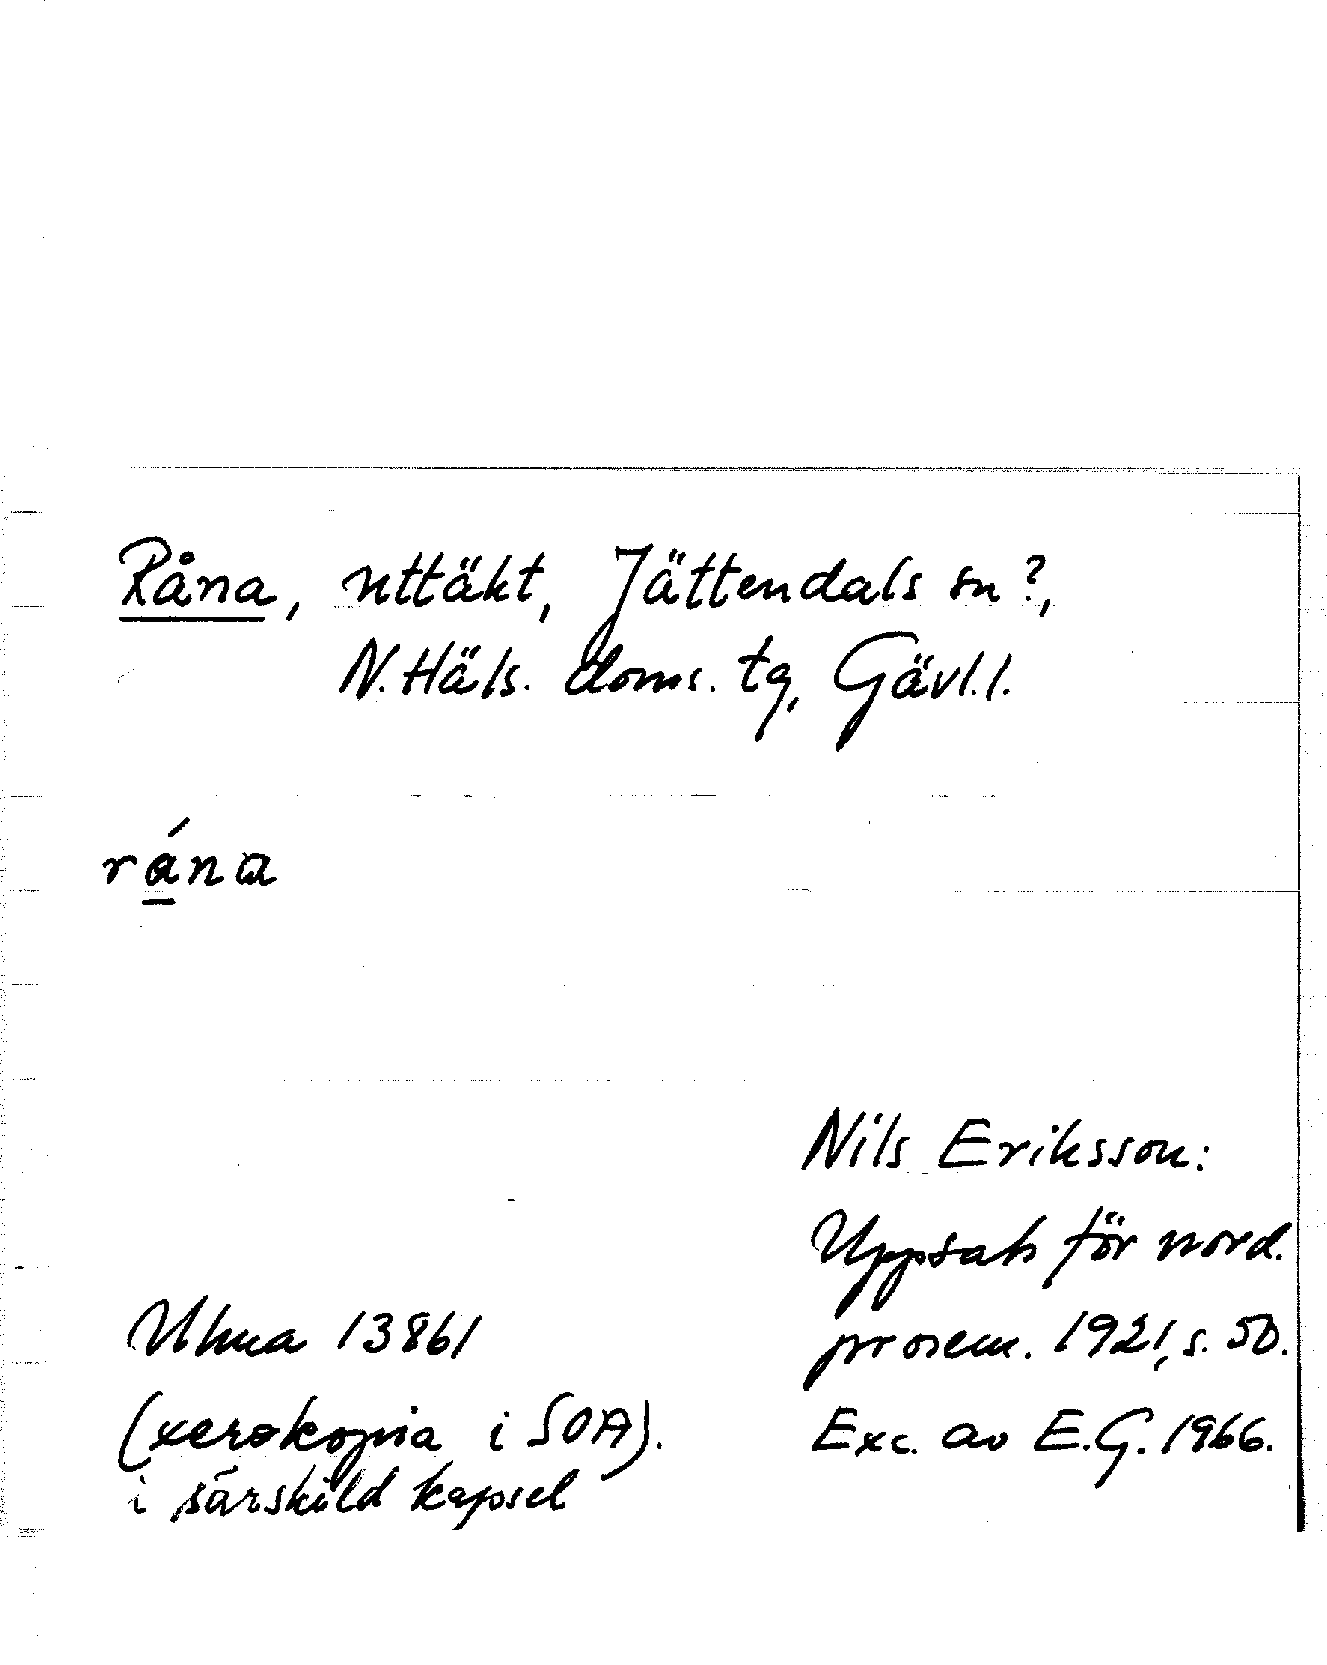 Råna, uttäkt, Jättendals sn?,
N. Häls. doms. tg, Gävl. l.
rána
Nils Eriksson:
Uppsats för nord.
prosem. 1921, s. 50.
Exc. av E.G. 1966.
Ulma 13861
(xerokopia i SOA).
i särskild kapsel